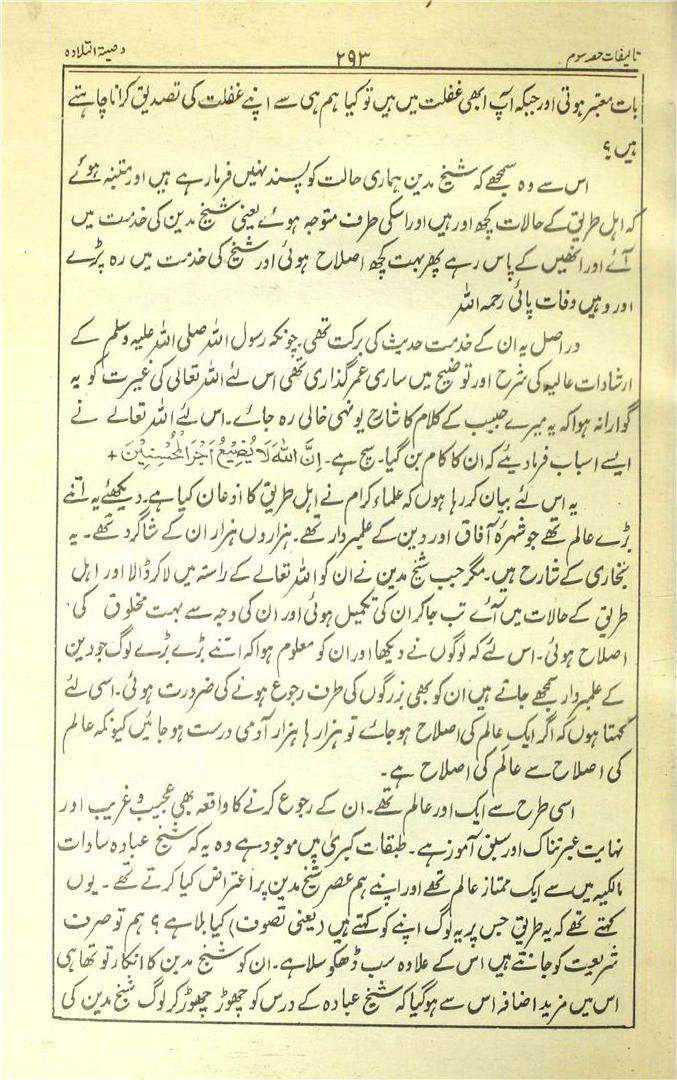 تالیفات حصہ سوم
۲۹۳
وصیۃ التلاوہ
بات معتبر ہوتی اور جبکہ آپ ابھی غفلت میں ہیں تو کیا ہم ہی سے اپنے غفلت کی تصدیق کرانا چاہتے
ہیں؟
اس سے وہ سمجھے کہ شیخ مدین ہماری حالت کو پسند نہیں فرما رہے ہیں اور متنبہ ہوئے
کہ اہل طریق کے حالات کچھ اور ہیں اور اسکی طرف متوجہ ہوئے یعنی شیخ مدین کی خدمت میں
آئے اور انھیں کے پاس رہے پھر بہت کچھ اصلاح ہوئی اور شیخ کی خدمت میں رہ پڑے
اور وہیں وفات پائی رحمہ اللہ
در اصل یہ ان کے خدمت حدیث کی برکت تھی۔ چونکہ رسول اللہ صلی اللہ علیہ وسلم کے
ارشادات عالیہ کی شرح اور توضیح میں ساری عمر گذاری تھی اس لئے اللہ تعالی کی غیرت کو یہ
گوارا نہ ہوا کہ یہ میرے حبیب کے کلام کا شارح یونہی خالی رہ جائے۔ اس لئے اللہ تعالے نے
ایسے اسباب فرما دیئے کہ ان کا کام بن گیا۔ سچ ہے۔ اِنَّ اللہَ لَا یُضِیْعُ اَجْرَ الْمُحْسِنِیْنَ +
یہ اس لئے بیان کر رہا ہوں کہ علماء کرام نے اہل طریق کا اذعان کیا ہے۔ دیکھئے یہ اتنے
بڑے عالم تھے جو شہرۂ آفاق اور دین کے علمبردار تھے۔ ہزاروں ہزار ان کے شاگرد تھے۔ یہ
بخاری کے شارح ہیں۔ مگر جب شیخ مدین نے ان کو اللہ تعالے کے راستہ میں لاکر ڈالا اور اہل
طریق کے حالات میں آئے تب جا کر ان کی تکمیل ہوئی اور ان کی وجہ سے بہت مخلوق کی
اصلاح ہوئی۔ اس لئے کہ لوگوں نے دیکھا اور ان کو معلوم ہوا کہ اتنے بڑے بڑے لوگ جو دین
کے علمبردار سمجھے جاتے ہیں ان کو بھی بزرگوں کی طرف رجوع ہونے کی ضرورت ہوئی۔ اسی لئے
کہتا ہوں کہ اگر ایک عالِم کی اصلاح ہو جائے تو ہزار ہا ہزار آدمی درست ہو جائیں کیونکہ عالِم
کی اصلاح سے عالَم کی اصلاح ہے۔
اسی طرح سے ایک اور عالم تھے۔ ان کے رجوع کرنے کا واقعہ بھی عجیب و غریب اور
نہایت عبرتناک اور سبق آموز ہے۔ طبقات کبریٰ میں موجود ہے وہ یہ کہ شیخ عبادہ سادات
مالکیہ میں سے ایک ممتاز عالم تھے اور اپنے ہم عصر شیخ مدین پر اعتراض کیا کرتے تھے۔ یوں
کہتے تھے کہ یہ طریق جس پر یہ لوگ اپنے کو کہتے ہیں (یعنی تصوف) کیا بلا ہے؟ ہم تو صرف
شریعت کو جانتے ہیں اس کے علاوہ سب ڈھکوسلا ہے۔ ان کو شیخ مدین کا انکار تو تھا ہی
اس میں مزید اضافہ اس سے ہو گیا کہ شیخ عبادہ کے درس کو چھوڑ چھوڑ کر لوگ شیخ مدین کی